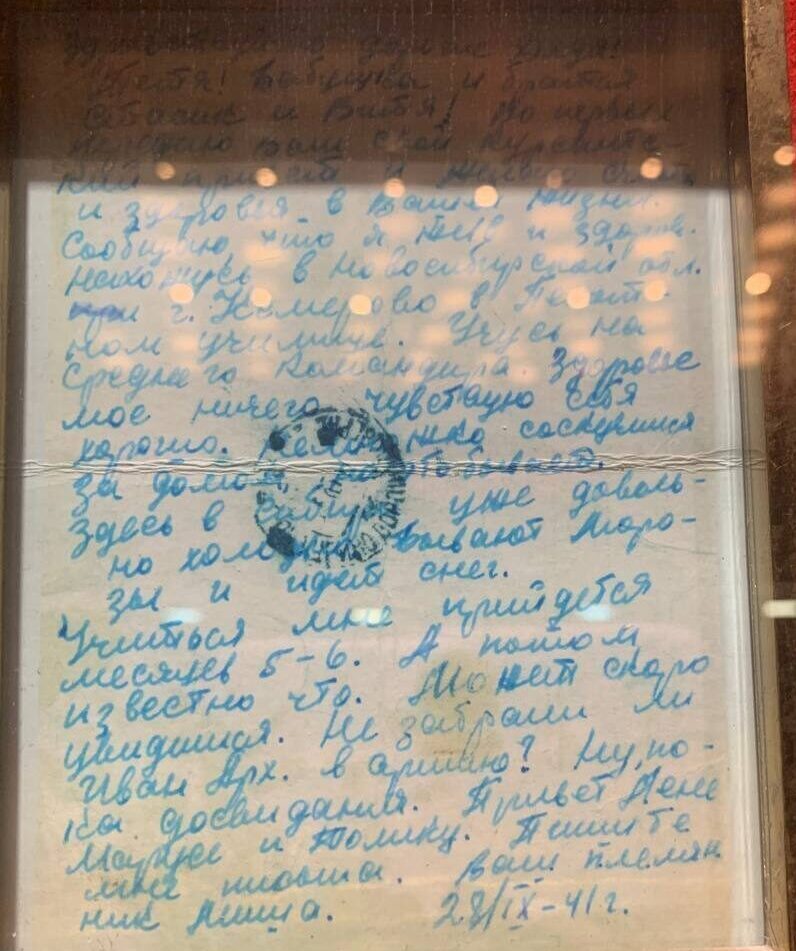 Здравствуйте дорогие Дядя!
Тетя! Бабушка и братья
Стасик и Витя! Во первых
передаю Вам свой курсантс-
кий привет и желаю счастья
и здоровья в Вашей жизни.
Сообщаю, что я жив и здоров.
Нахожусь в Новосибирской обл.
г. Кемерово в Пехот-
ном училище. Учусь на
среднего командира. Здоровье
мое ничего чувствую себя
хорошо. Немножко соскучился
за домом
Здесь в Сибири уже доволь-
но холодно, бывают моро-
зы и идет снег.
Учиться мне прийдется
месяцев 5-6. А потом
известно что. Может скоро
увидимся. Не забрали ли
Иван Арх. в армию? Ну, по-
ка досвидания. Привет Лене
Марусе и Толику. Пишите
мне письма. Ваш племян
ник Миша. 28/IX-41 г.